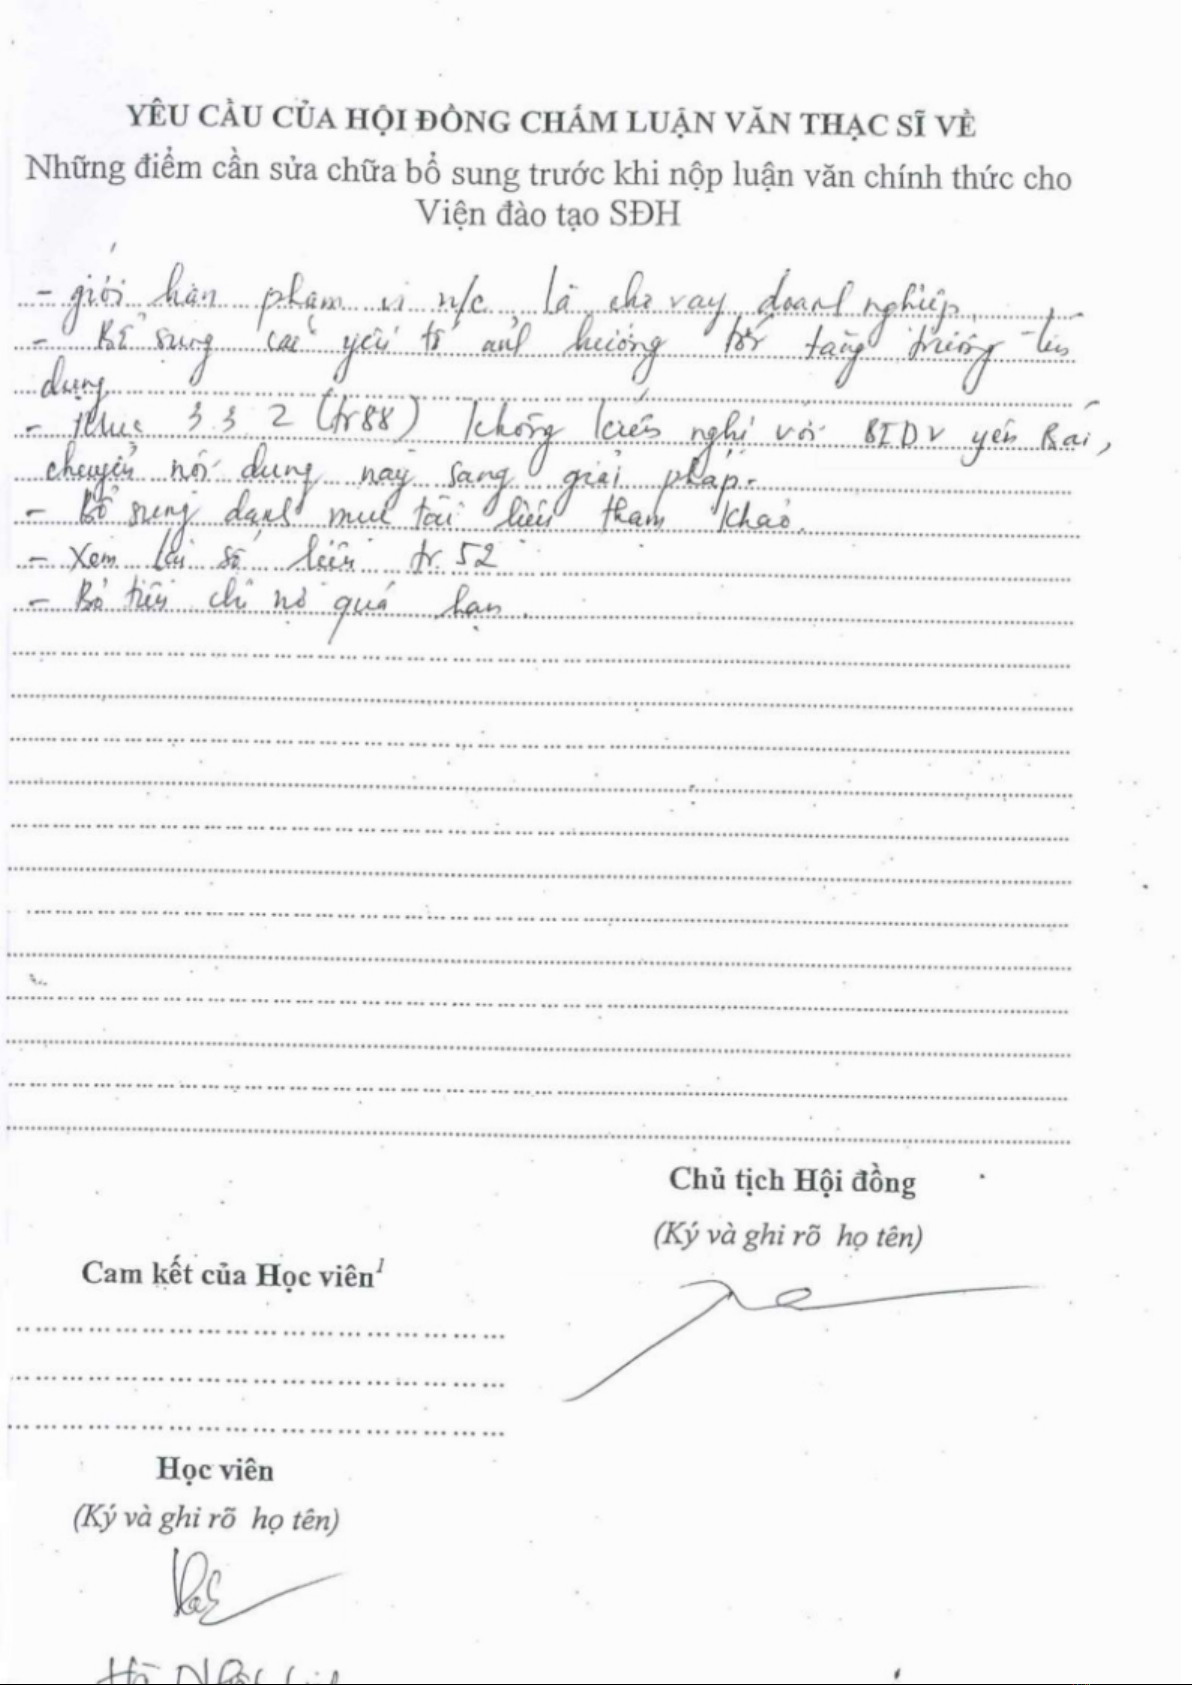 YÊU CẦU CỦA HỘI ĐỒNG CHẤM LUẬN VĂN THẠC SĨ VỀ
Những điểm cần sửa chữa bổ sung trước khi nộp luận văn chính thức cho
Viện đào tạo SĐH
- giới hạn phạm vi n/c là cho vay doanh nghiệp.
- Bổ sung các yếu tố ảnh hưởng tới tăng trưởng tín
dụng
- Mục 3.3.2 (tr88) không kiến nghị với BIDV yên Bái,
chuyển nội dung này sang giải pháp.
- Bổ sung danh mục tài liệu tham khảo.
- Xem lại số liệu tr.52
- Bỏ tiêu chí nợ quá hạn.
Chủ tịch Hội đồng
(Ký và ghi rõ họ tên)
Cam kết của Học viên1
Học viên
(Ký và ghi rõ họ tên)